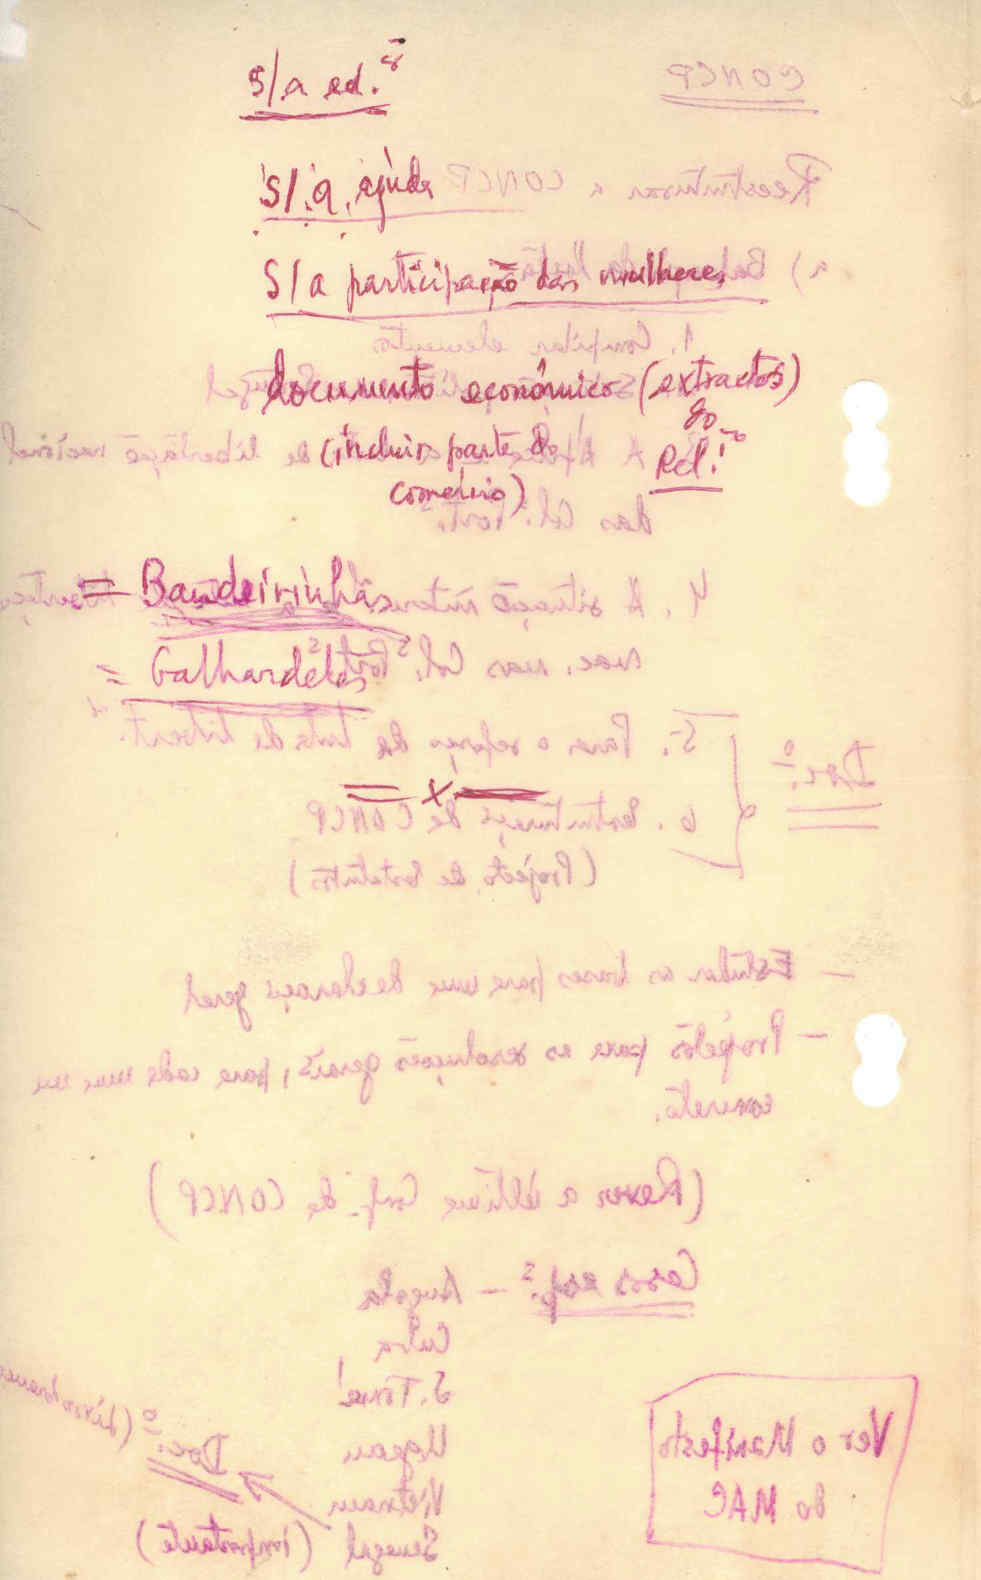 S/a ed.ª
S/a ajuda
S/a participação das mulheres
documento económico (extractos)
do
(incluir parte do Rel.º
comércio)
= Bandeirinhas
= Galhardetes
= x =
CONCP
Reestruturar a CONCP
a)
1. Compilar elementos
A de libertação nacional
das Col. Port.
4. A situação interna
nac. nas Col.s Port.s
5. Para o reforço da luta de libert.
Doc.º
6. Estruturação da CONCP
(Projecto de Estatutos)
— Estudar as bases para uma declaração geral
— Projectos para as resoluções gerais, para cada um em
concreto.
(Rever a última Conf. da CONCP)
Casos esp.s — Angola
Cuba
S. Tomé
Ver o Manifesto
do MAC
Doc.º
Vietnam
Senegal (importante)